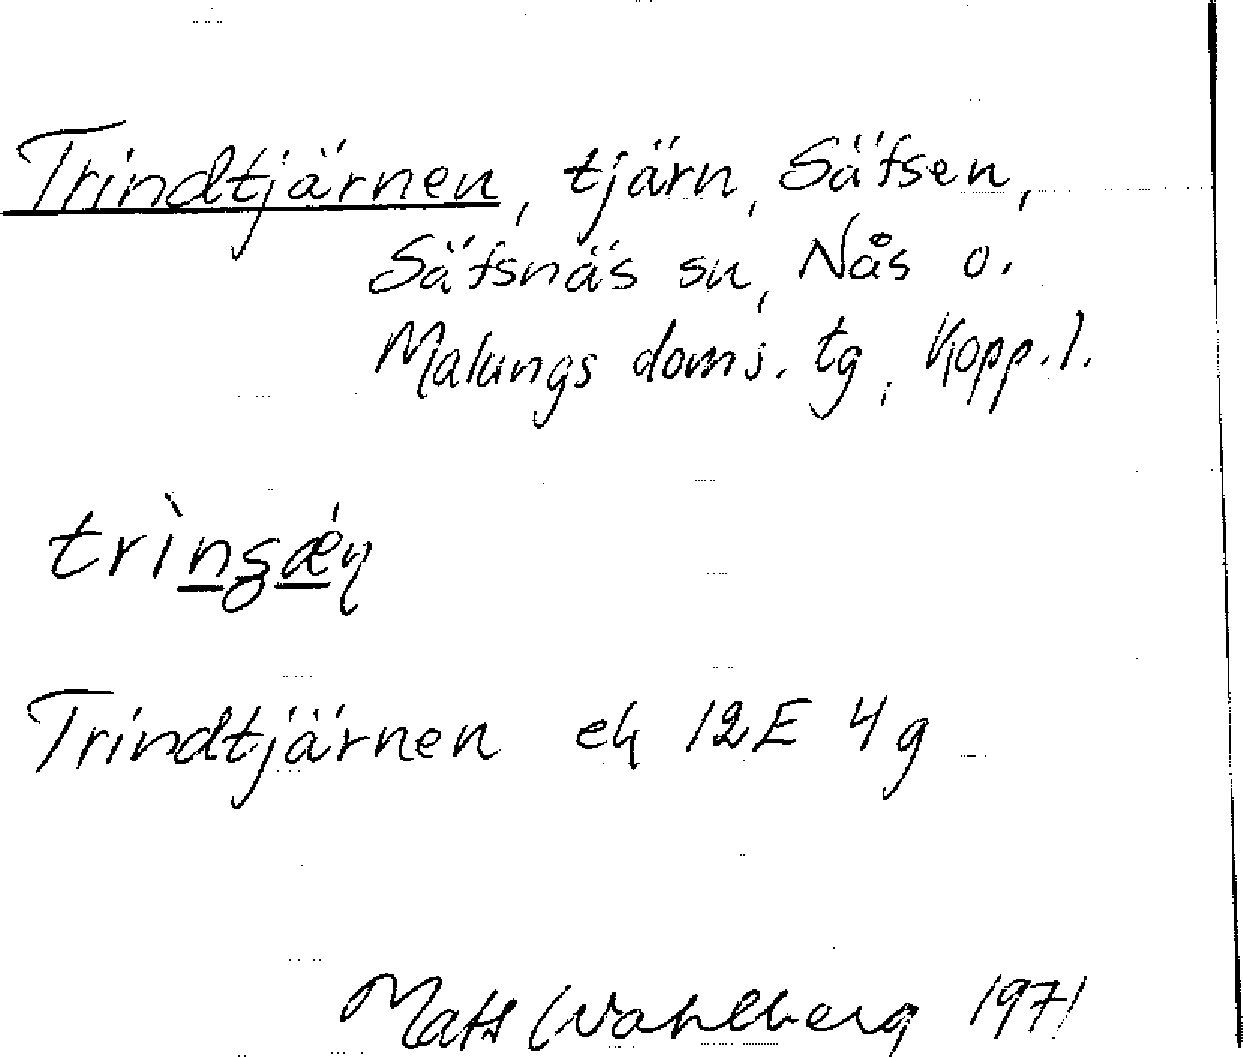 Trindtjärnen, tjärn, Säfsen,
Säfsnäs sn, Nås o.
Malungs doms. tg, Kopp. l.
Trindtjärnen ek 12E 4g
Mats Wahlberg 1971